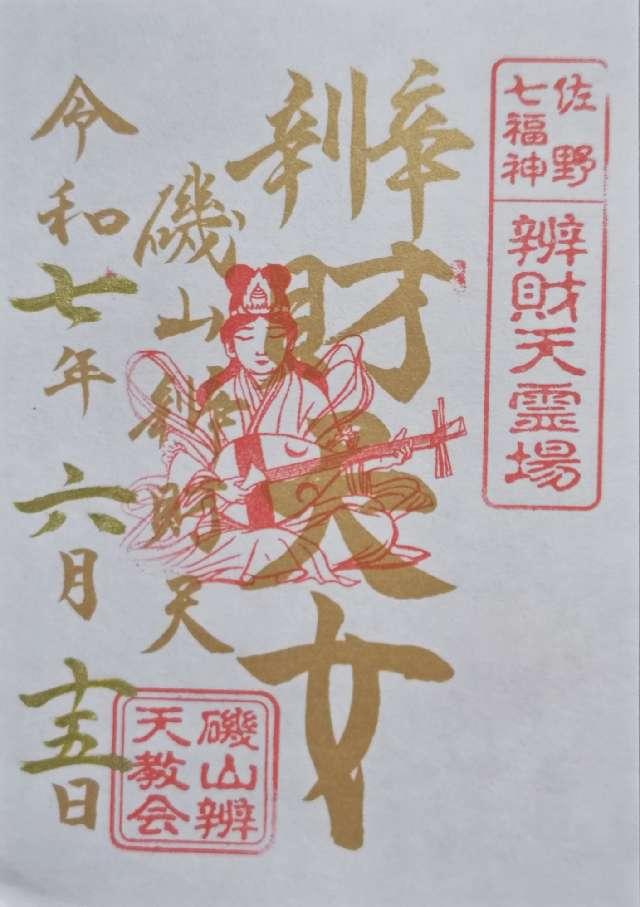 佐野
七福神
辨財天霊場
辨財天女
磯山辨財天
令和七年六月十五日
磯山辨
天教会